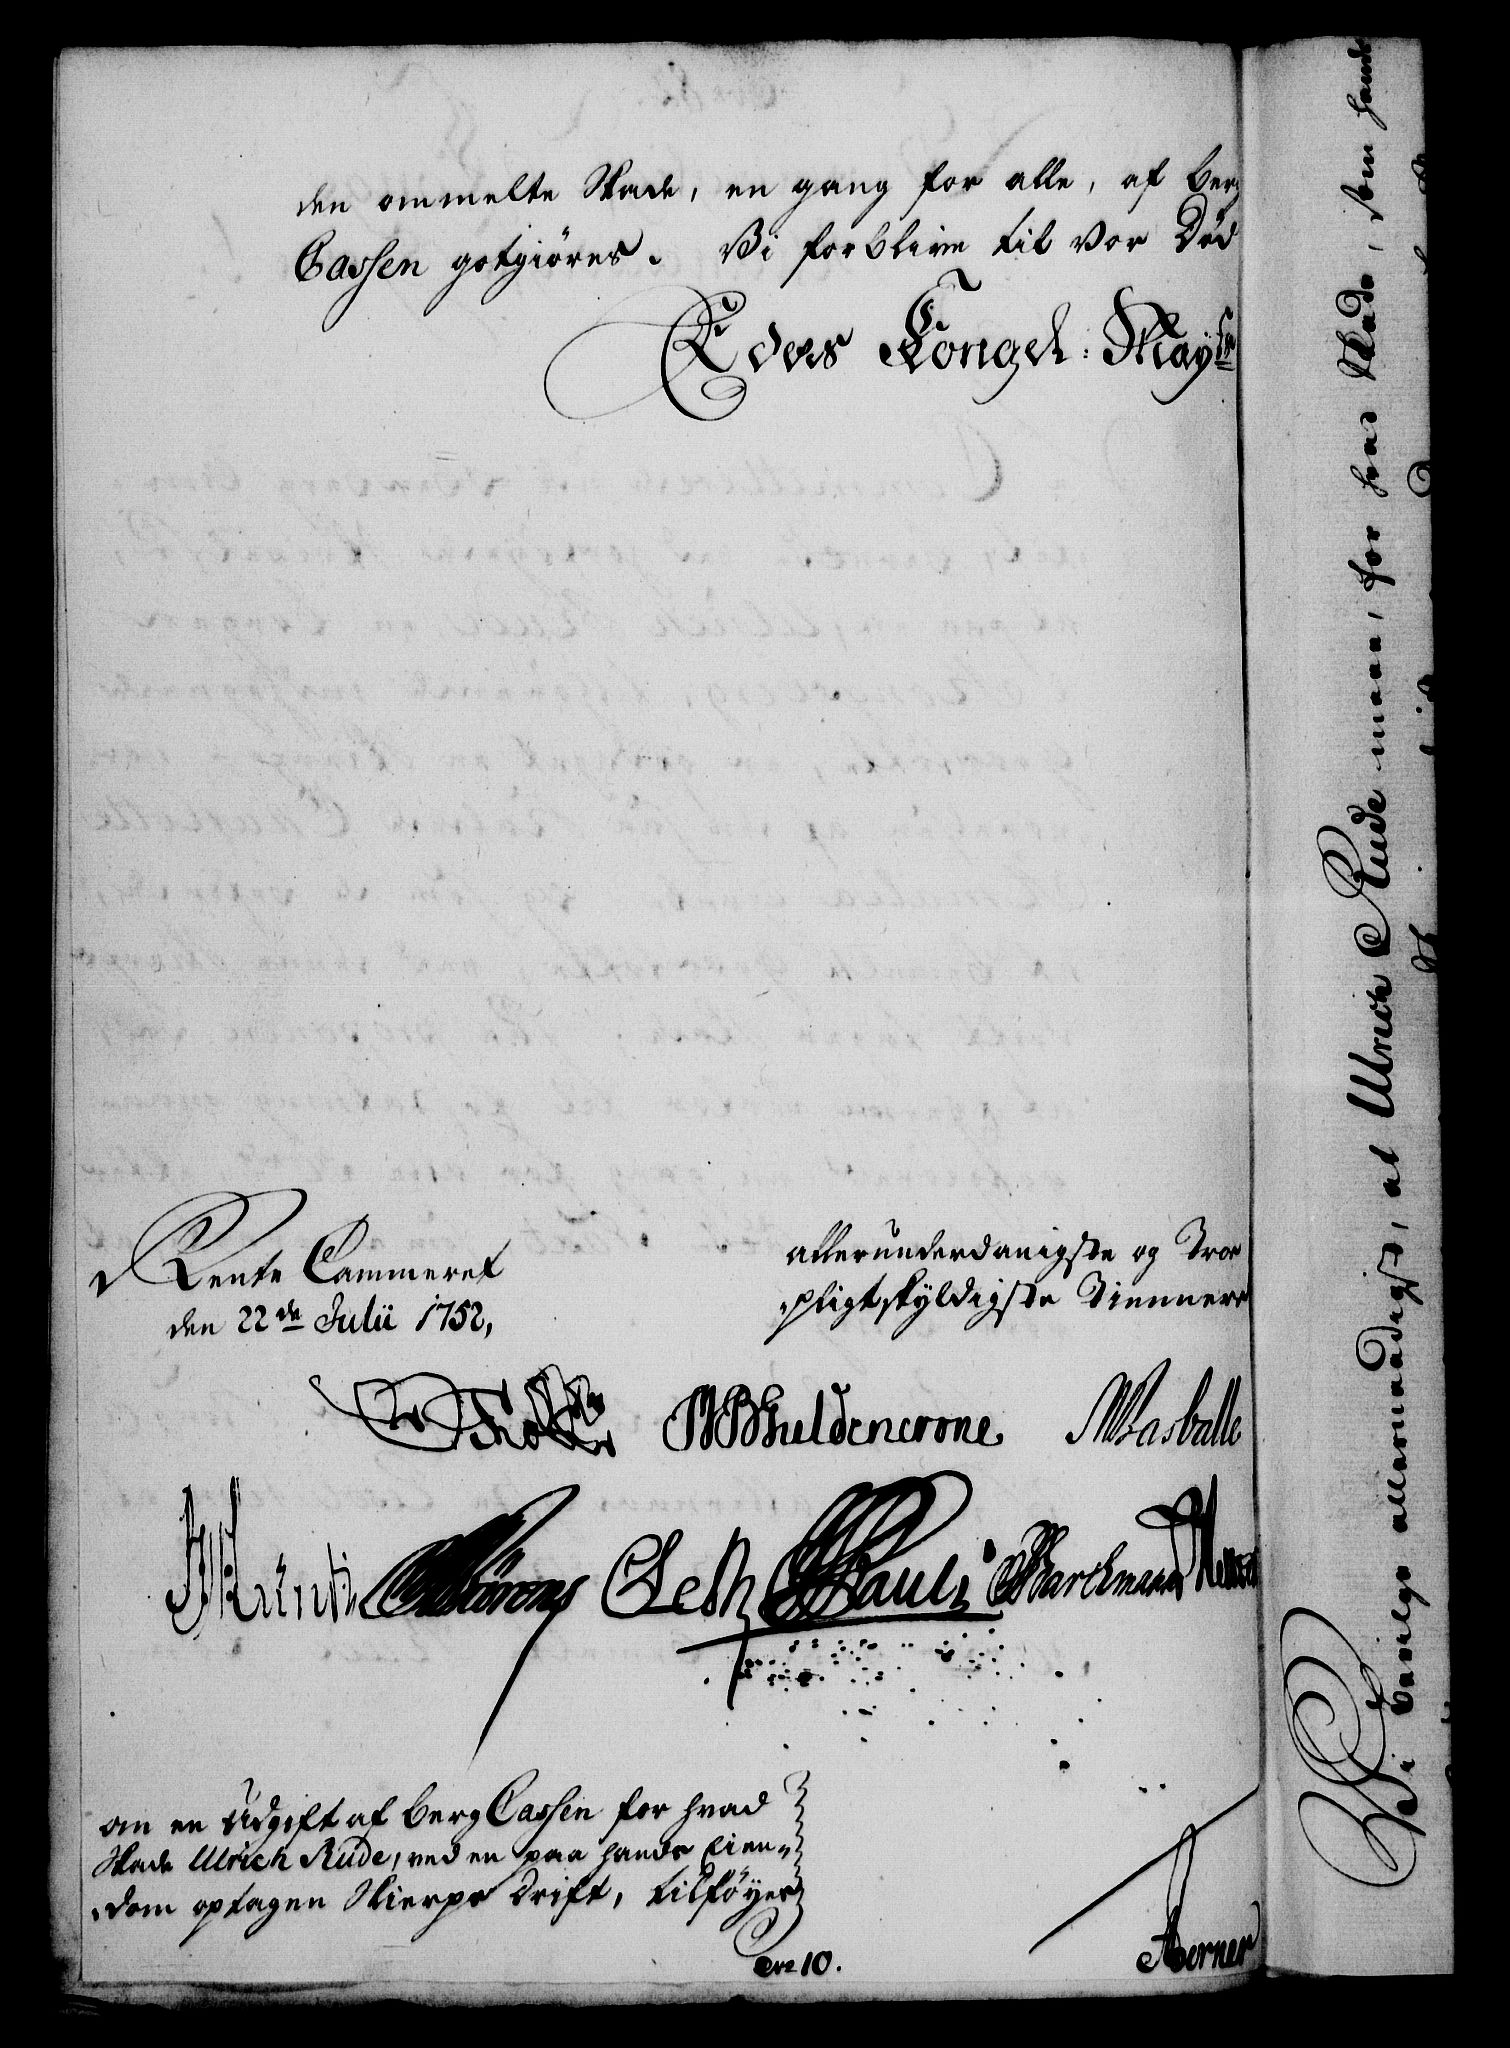 den ommelte Skade, en gang for alle, af berg
Cassen gotgiöres. Vi forblive til Vor Död
Eders Kongel: May
Rente Cammeret
den 22de Julii 1752,
allerunderdanigste og Troe
pligtskyldigste Tiennere
Holst
Guldencrone
Basballe
Pauli
Barchmann
om en Udgift af berg Cassen for hvad
Skade Ulrich Rude, ved en paa hands Eien-
dom optagen Skierps Drift, tilföyes
10.
Berner
Vi bevilge allernaadigst, at Ulrich Rude maae, for hvad Skade, som hands